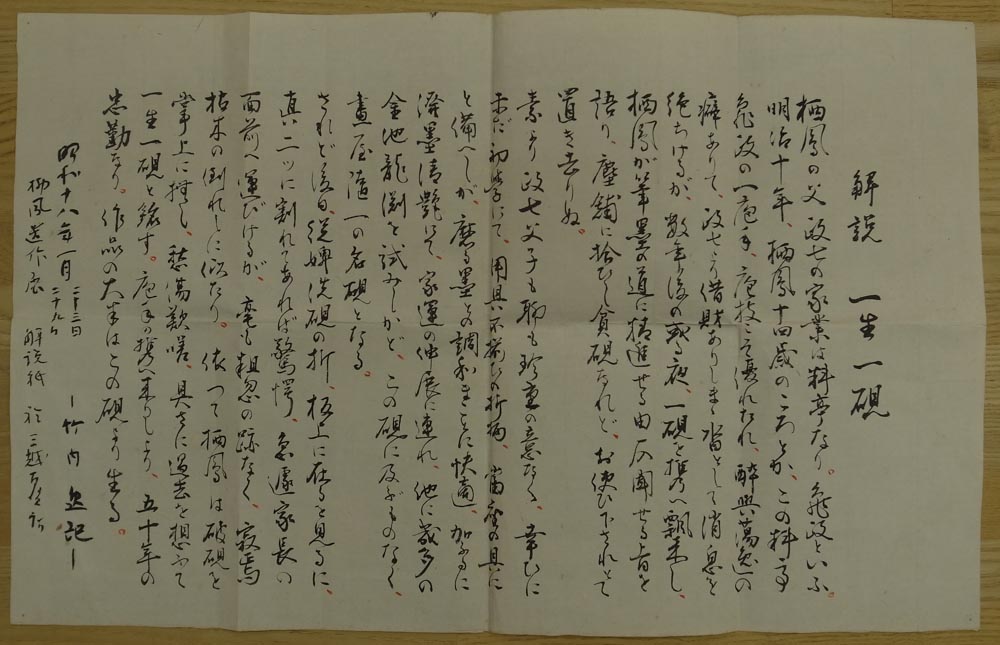 解説　一生一硯
栖鳳の父政七の家業は料亭なり。亀政といふ。
明治十年、栖鳳十四歳のころとか、この料亭
亀政の一庖手、庖技こそ優れたれ、酔興蕩逸の
癖ありて、政七より借財ありしまゝ杳として消息を
絶ちけるが、数年後の或る夜、一硯を携へ飄来し、
栖鳳が筆墨の道に精進せる由仄聞せる旨を
語り、塵舗に拾ひし貧硯なれど、お使ひ下されとて
置き去りぬ。
素より政七父子も聊も珍重の意なく、幸ひに
未だ初学にて、用具不揃ひの折柄、当座の具に
と備へしが、磨る墨との調和まことに快適　加ふるに
溌墨清艶にて、家運の伸展に連れ、他に幾多の
金池龍渕を試みしかど、この硯に及ぶものなく、
画屋随一の名硯となる。
されど後日従婢洗硯の折、板上に在るを見るに、
真二ツに割れてあれば驚愕、急遽家長の
面前へ運びけるが、毫も粗忽の跡なく、寂焉
枯木の倒れしに似たり。依つて栖鳳は破硯を
掌上に撫し、愁傷歎嗟、具さに過去を想ふて
一生一硯と銘す。庖手の携へ来りしより、五十年の
忠勤なり。作品の大半はこの硯より生る。
昭和十八年一月　二十三日　二十九日　ー竹内逸記ー
栖鳳遺作展　解説紙　於三越